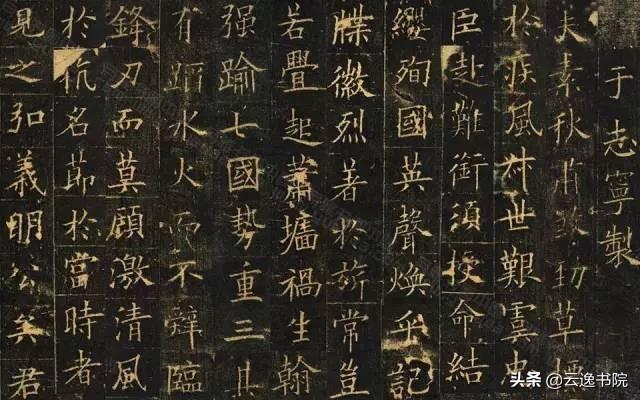 于志寧製
夫素秋肅煞勁草標
於疾風叔世艱虞忠
臣赴難銜須授命結
纓殉國英聲煥乎記
牒徽烈著於旂常豈
若釁起蕭墻禍生翰
强踰七國勢重三其
有蹈水火而不辭臨
鋒刃而莫顧激清風
於抗名節於當時者
見之弘義明公矣君
头条 @云逸书院